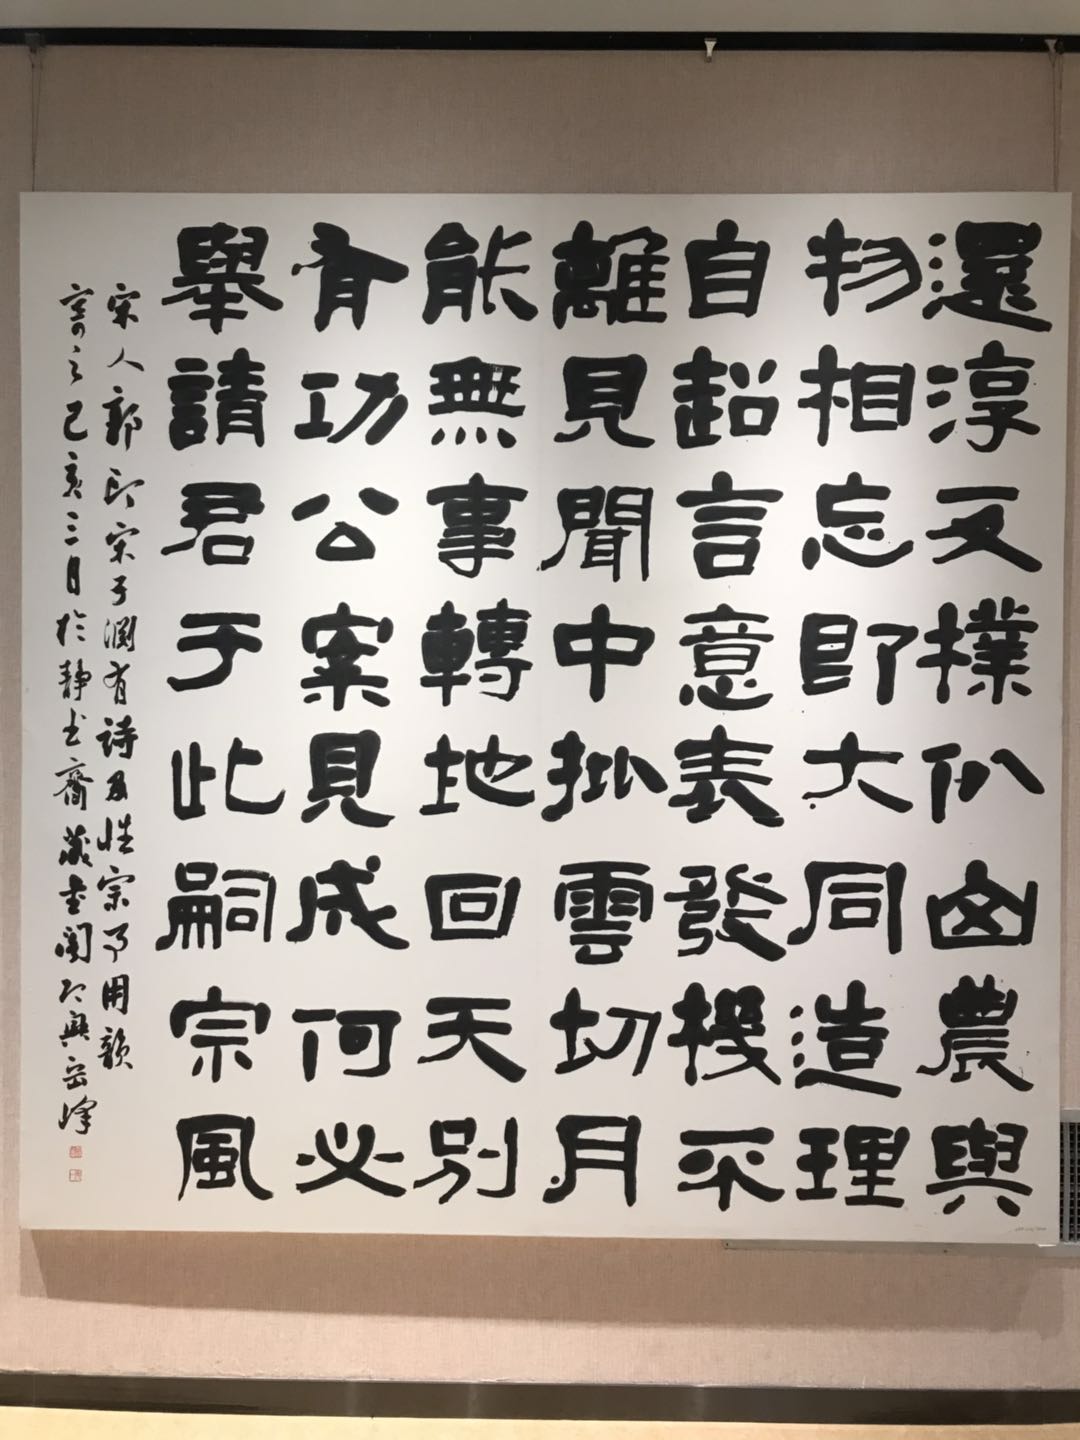 還淳反樸仈㐫農與
物相忘即大同造理
自超言意表發機不
離見聞中批雲切月
能無事轉地回天别
有功公案見成何必
舉請君于此嗣宗風
宋人郭印宋子淵有詩及性宗事用韻
寄之己亥三月於静士齋藏書閣